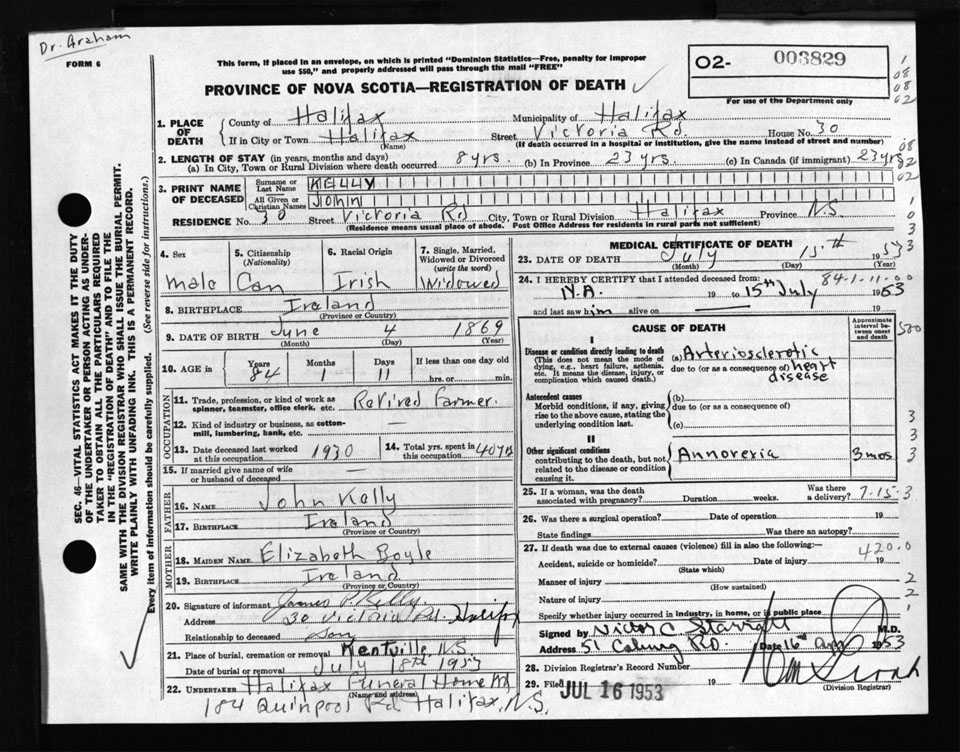 Dr. Graham
FORM 6
This form, if placed in an envelope, on which is printed "Dominion Statistics—Free, penalty for improper
use $50," and properly addressed will pass through the mail "FREE"
PROVINCE OF NOVA SCOTIA—REGISTRATION OF DEATH
O2- 003829
For use of the Department only
1. PLACE OF DEATH
County of Halifax Municipality of Halifax
If in City or Town Halifax (Name) Street Victoria Rd. House No. 30
(If death occurred in a hospital or institution, give the name instead of street and number)
2. LENGTH OF STAY (in years, months and days)
(a) In City, Town or Rural Division where death occurred 8 yrs. (b) In Province 23 yrs. (c) In Canada (if immigrant) 23 yrs
3. PRINT NAME OF DECEASED
Surname or Last Name KELLY
All Given or Christian Names JOHN
RESIDENCE No. 30 Street Victoria Rd City, Town or Rural Division Halifax Province N.S.
(Residence means usual place of abode. Post Office Address for residents in rural parts not sufficient)
4. Sex
male
5. Citizenship (Nationality)
Can
6. Racial Origin
Irish
7. Single, Married, Widowed or Divorced (write the word)
Widowed
8. BIRTHPLACE Ireland
(Province or Country)
9. DATE OF BIRTH June 4 1869
(Month) (Day) (Year)
10. AGE in
Years 84 Months 1 Days 11 If less than one day old
hrs. or min.
OCCUPATION
11. Trade, profession, or kind of work as spinner, teamster, office clerk, etc. Retired Farmer.
12. Kind of industry or business, as cotton-mill, lumbering, bank, etc. —
13. Date deceased last worked at this occupation 1930
14. Total yrs. spent in this occupation 40 yrs
15. If married give name of wife or husband of deceased —
FATHER
16. NAME John Kelly
17. BIRTHPLACE Ireland
(Province or Country)
MOTHER
18. MAIDEN NAME Elizabeth Boyle
19. BIRTHPLACE Ireland
(Province or Country)
20. Signature of informant James P. Kelly.
Address 30 Victoria Rd. Halifax
Relationship to deceased Son
21. Place of burial, cremation or removal Kentville, N.S.
Date of burial or removal July 18th 1953
22. UNDERTAKER Halifax Funeral Home
(Name and address)
184 Quinpool Rd. Halifax, N.S.
MEDICAL CERTIFICATE OF DEATH
23. DATE OF DEATH July 15th 1953
(Month) (Day) (Year)
84-1-11-00
24. I HEREBY CERTIFY that I attended deceased from:
N.A. 19 to 15th July 1953
and last saw him alive on 19
CAUSE OF DEATH
Approximate interval between onset and death
I
Disease or condition directly leading to death
(This does not mean the mode of dying, e.g., heart failure, asthenia, etc. It means the disease, injury, or complication which caused death.)
(a) Arteriosclerotic
due to (or as a consequence of) heart disease
Antecedent causes
Morbid conditions, if any, giving rise to the above cause, stating the underlying condition last.
(b)
due to (or as a consequence of)
(c)
II
Other significant conditions
contributing to the death, but not related to the disease or condition causing it.
Annorexia 3 mos
25. If a woman, was the death associated with pregnancy? Duration weeks. Was there a delivery?
7-15-3
26. Was there a surgical operation? Date of operation 19
State findings Was there an autopsy?
27. If death was due to external causes (violence) fill in also the following:—
420.0
Accident, suicide or homicide? Date of injury 19
(State which)
Manner of injury
(How sustained)
Nature of injury
Specify whether injury occurred in industry, in home, or in public place
Signed by Victor C Starratt M.D.
Address 51 Coburg RD. Date 16th 1953
28. Division Registrar's Record Number 19
29. Filed JUL 16 1953
(Division Registrar)
SEC. 46—VITAL STATISTICS ACT MAKES IT THE DUTY
OF THE UNDERTAKER OR PERSON ACTING AS UNDER-
TAKER TO OBTAIN ALL THE PARTICULARS REQUIRED
IN THE "REGISTRATION OF DEATH" AND TO FILE THE
SAME WITH THE DIVISION REGISTRAR WHO SHALL ISSUE THE BURIAL PERMIT.
WRITE PLAINLY WITH UNFADING INK. THIS IS A PERMANENT RECORD.
Every item of information should be carefully supplied. (See reverse side for instructions.)